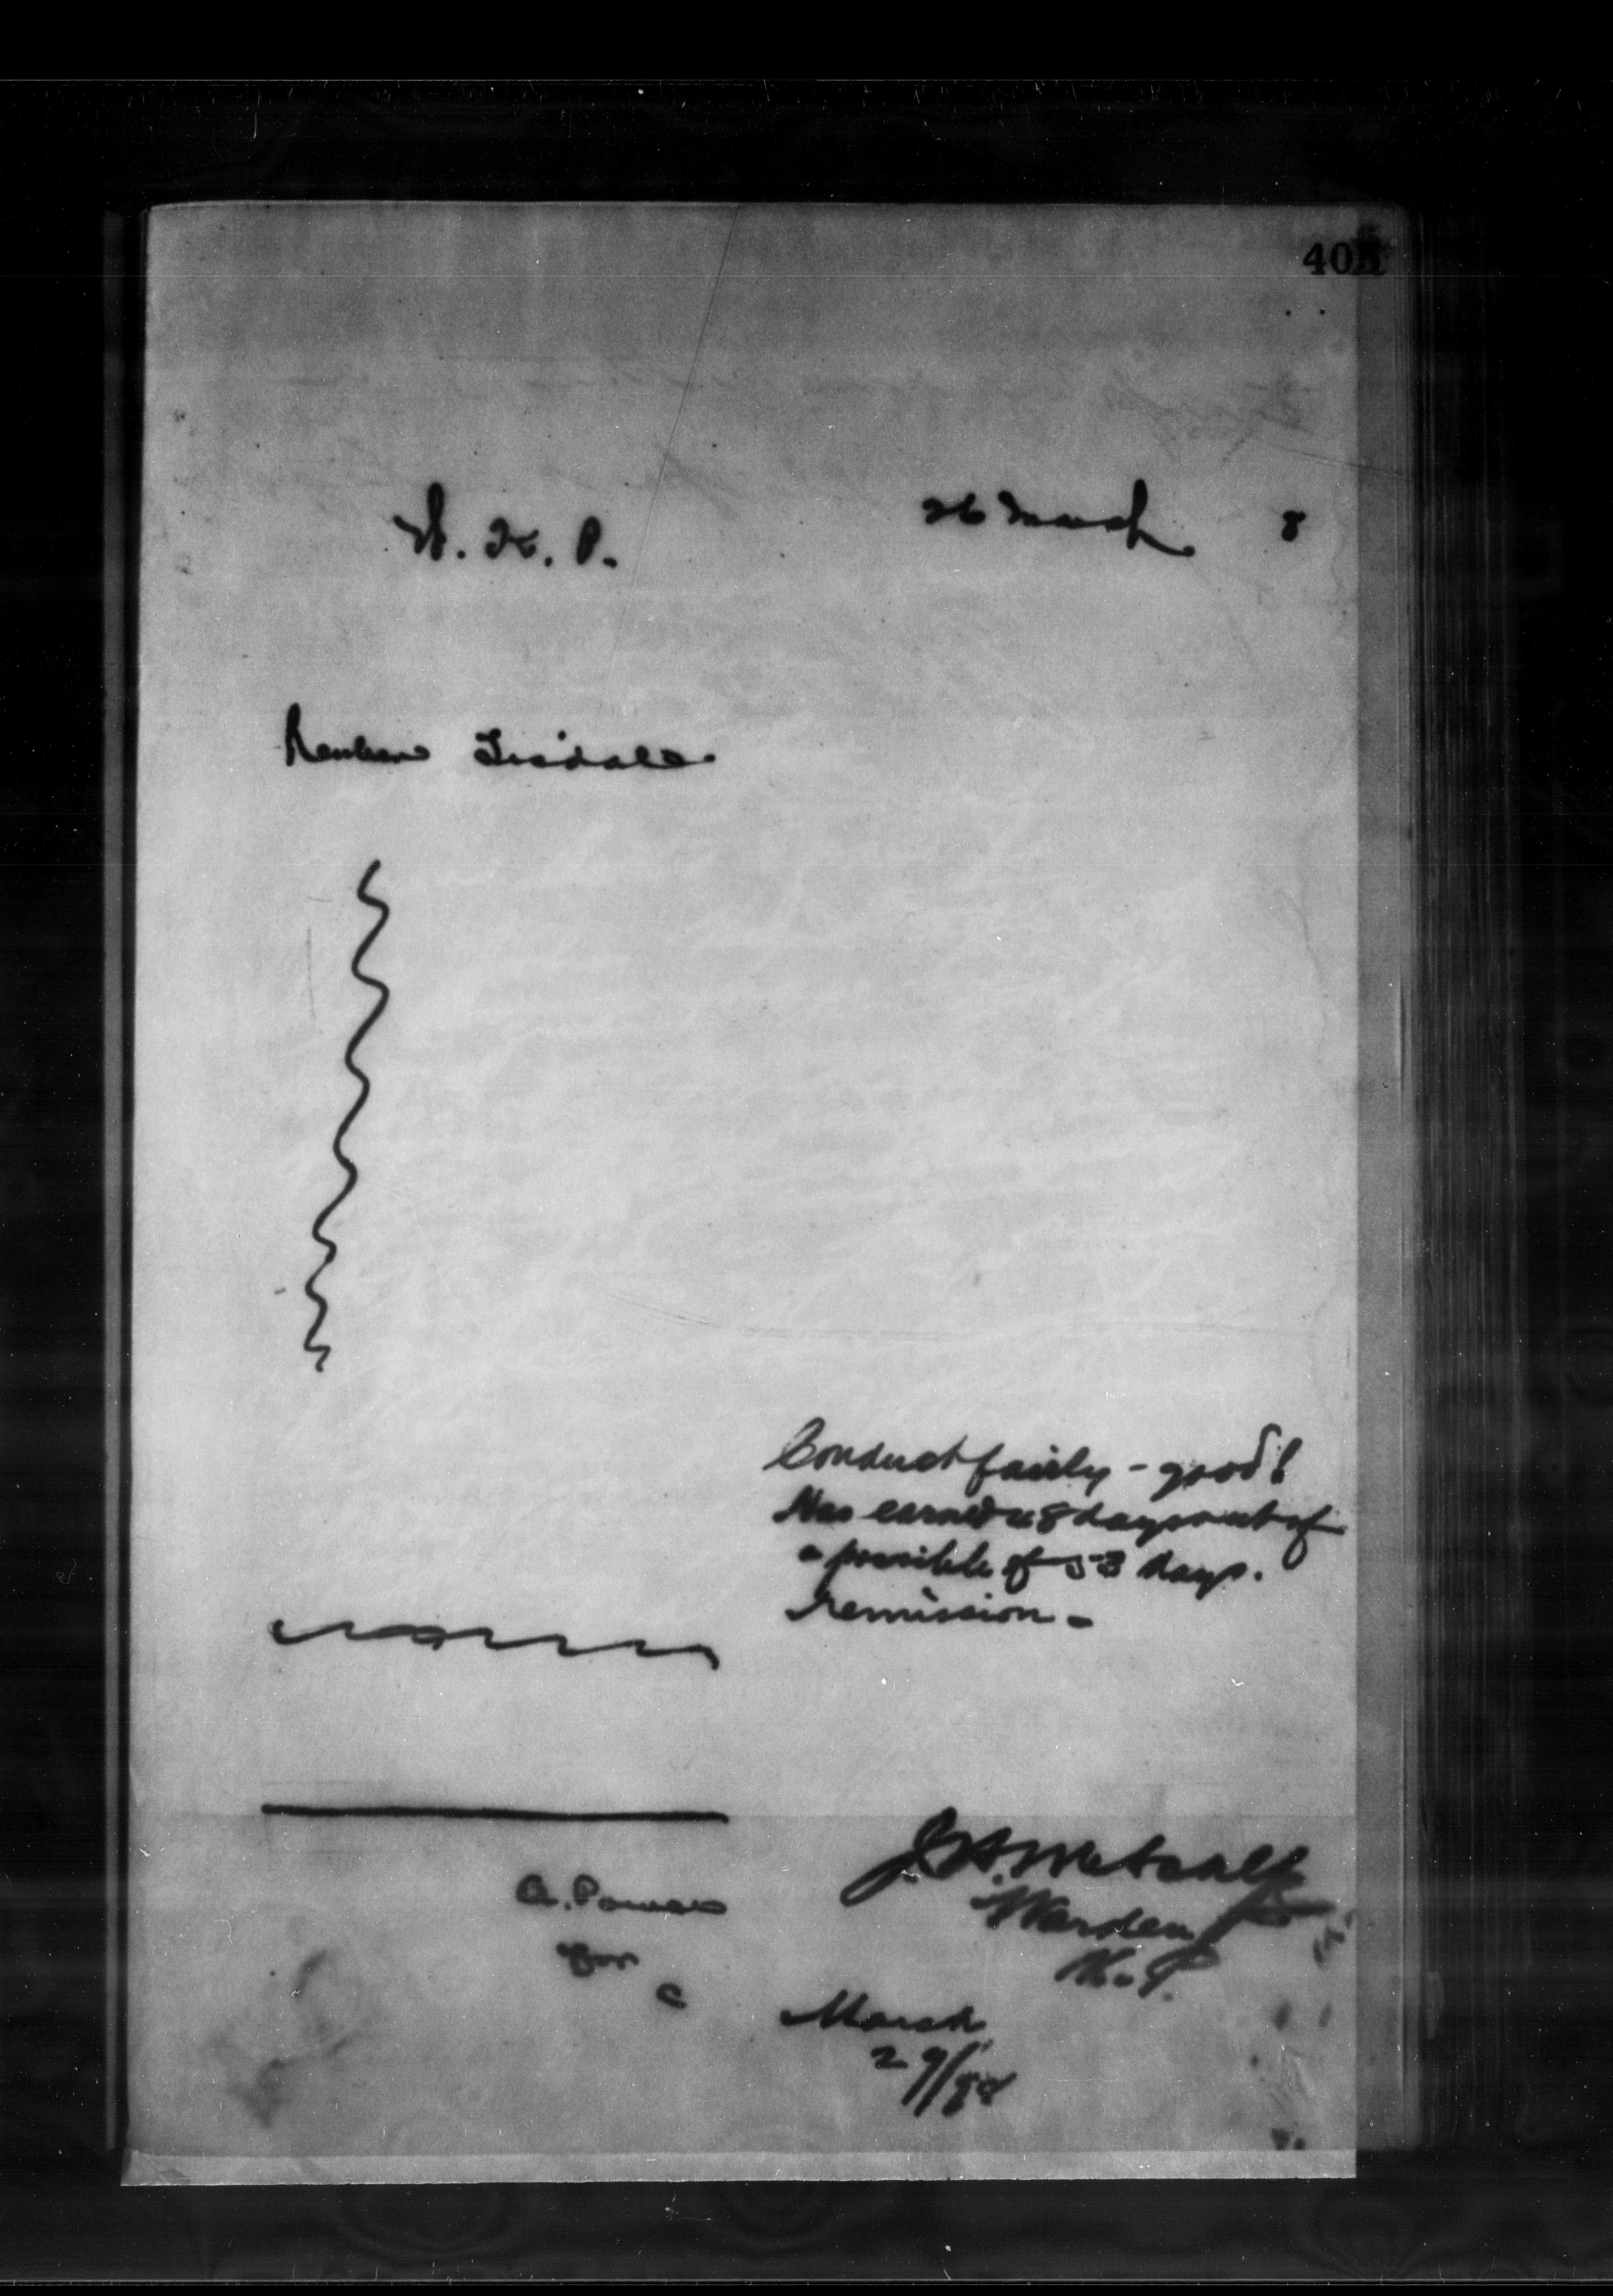 405
W. K. P. 26 March 8
Reuben Tisdale
Conduct fairly - good!
Has earned 48 days out of
a possible of 53 days.
remission -
J.H. Metcalf
A. Power Warden
for K. P.
C March
29/88